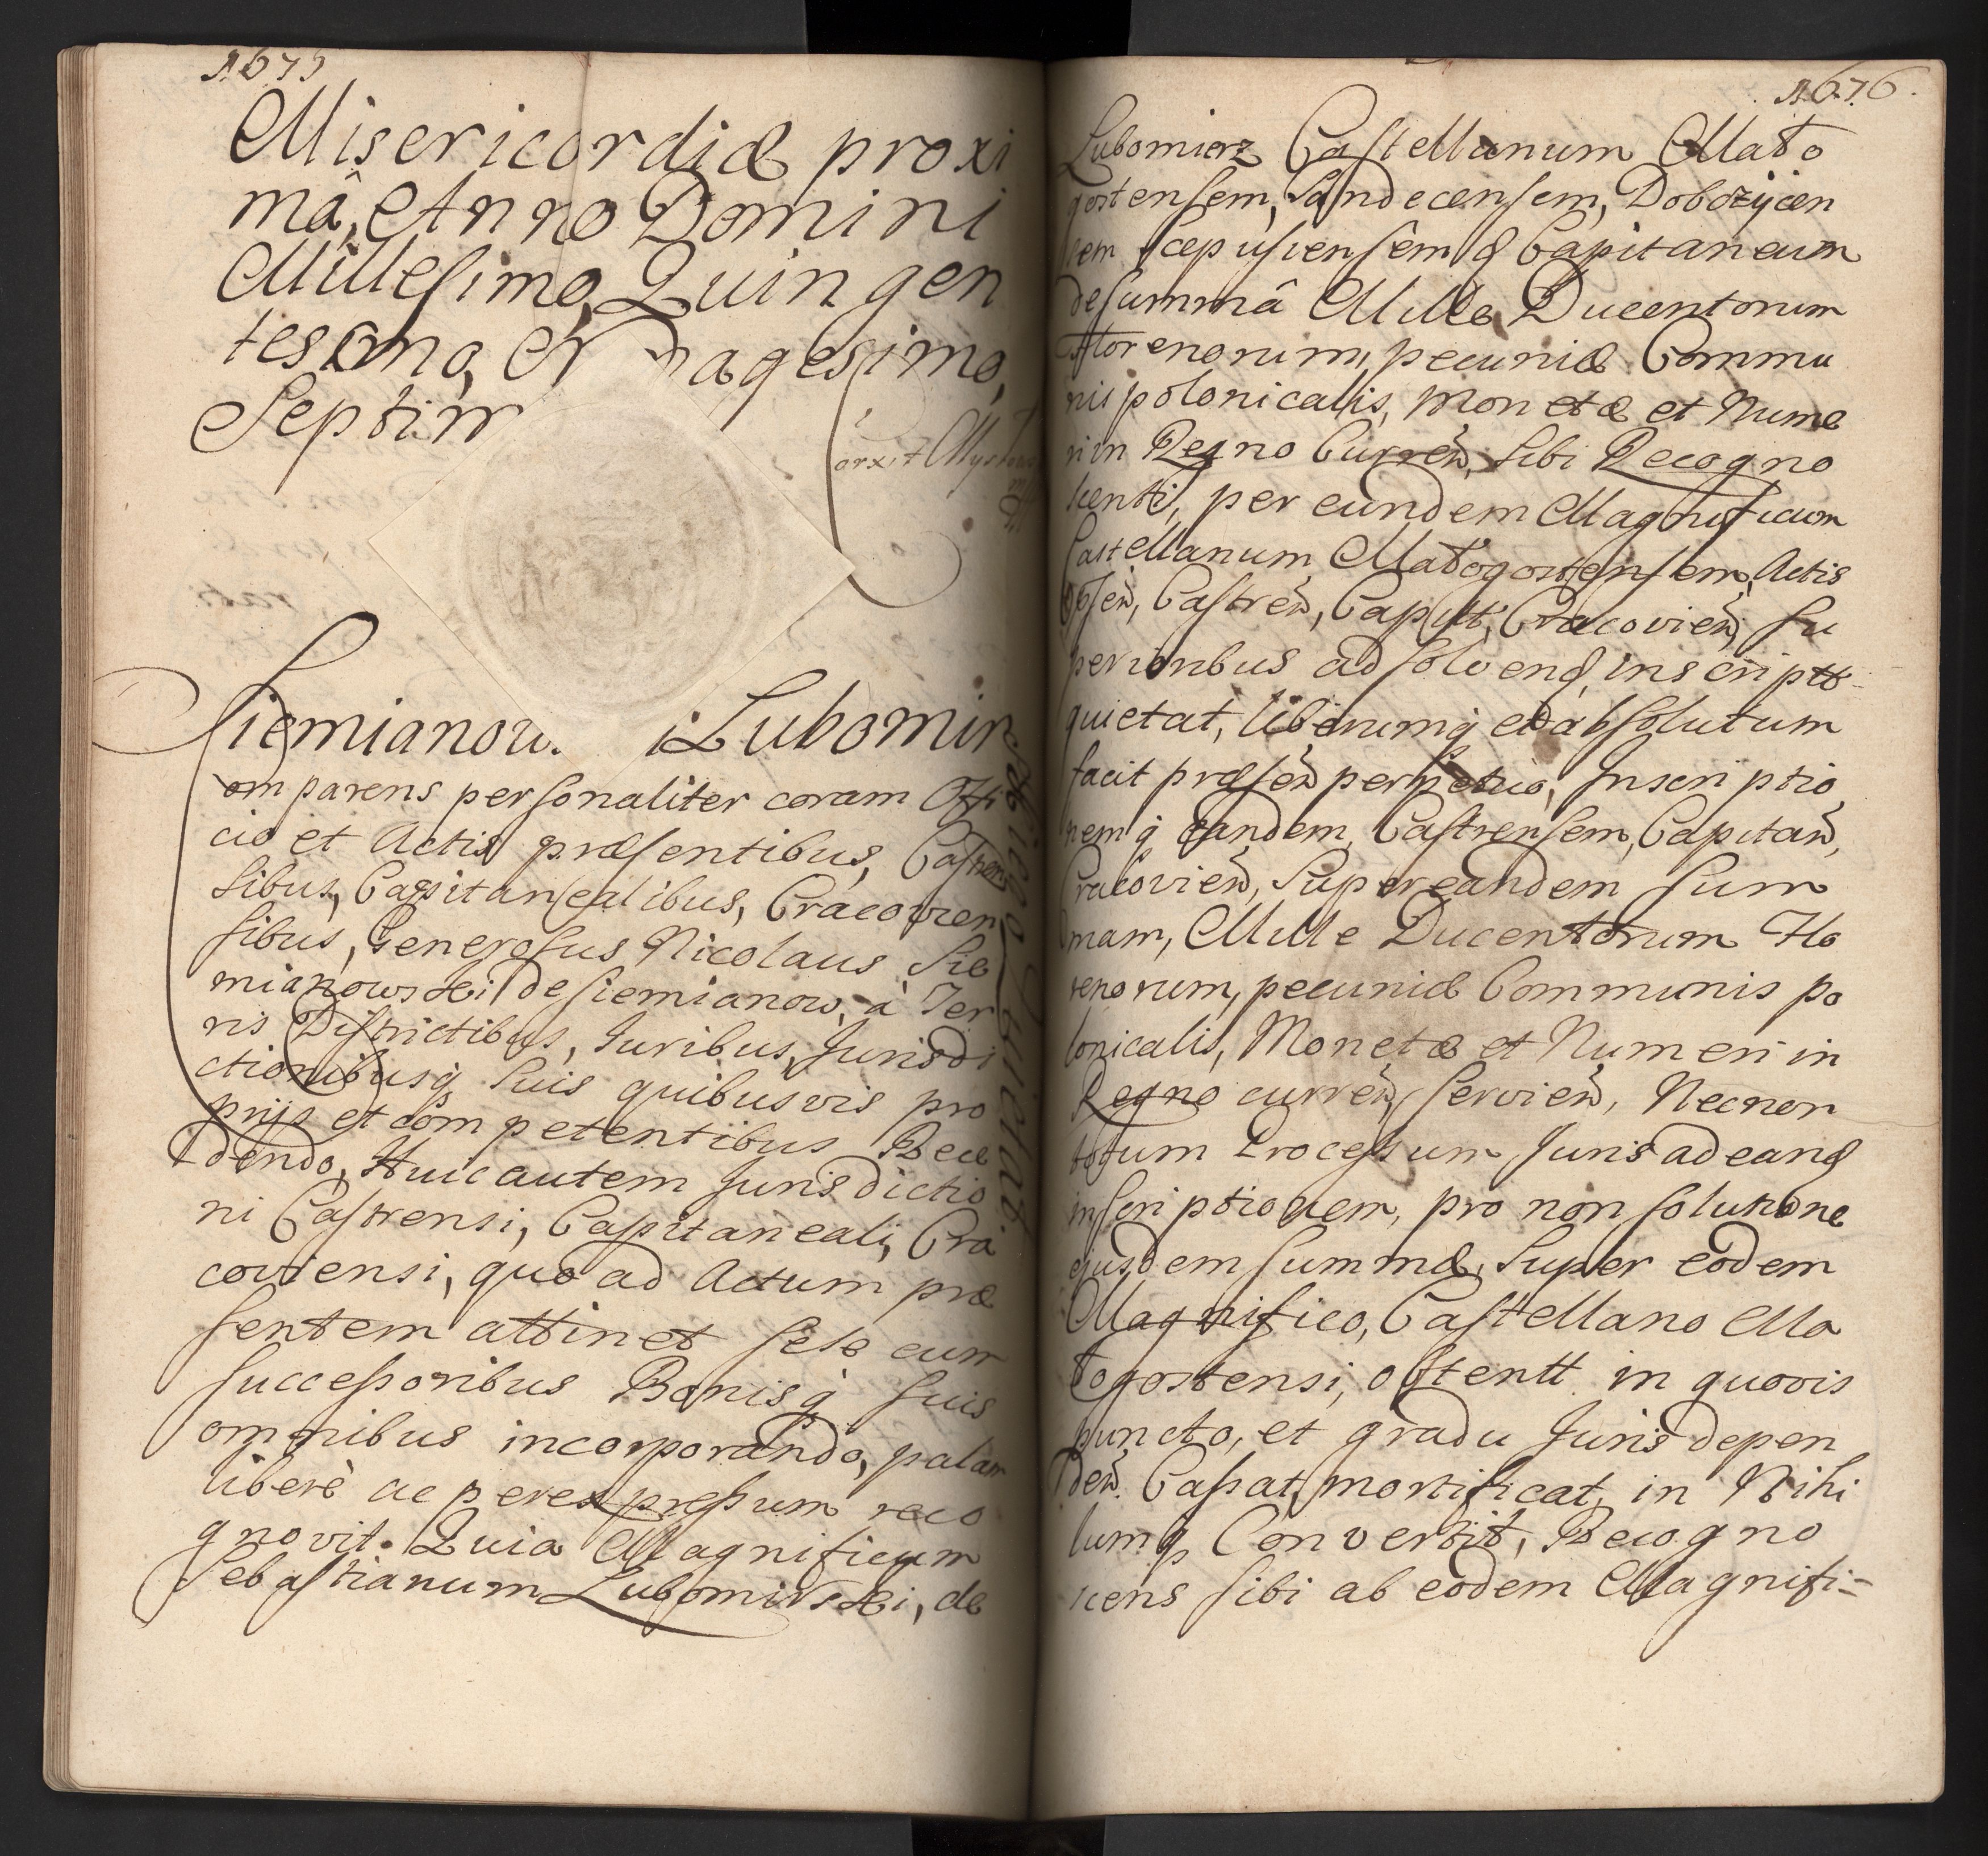 1675
Misericordiæ proxi
mâ, Anno Domini
Millesimo, Quingen
tesimo, Nonagesimo,
Septim
Siemianow. i Lubomir
omparens personaliter coram Offi
cio et Actis præsentibus, Castren
sibus, Capitanealibus, Cracovien
sibus, Generosus Nicolaus Sie
mianowski de Siemianow, à Ter
ris Districtibus, Iuribus, Jurisdi
ctionibusq̷ suis quibusvis pro
prijs et competentibus Rece
dendo, Huic autem Jurisdictio
ni Castrensi, Capitaneali, Cra
coviensi, quo ad Actum præ
sentem attinet sese cum
successoribus Bonisq̷ suis
omnibus incorporando, palam
liberè ac per expressum reco
gnovit. Quia Magnificum
Sebastianum Lubomirski, de
1676.
Lubomierz Castellanum Mało
gostensem, Sandecensem, Dobczÿcen
sem Scepusiensemq̷ Capitaneum
de summâ Mille Ducentorum
Florenorum, pecuniæ Commu
nis polonicalis, Monetæ et Nume
ri in Regno Curren̄, sibi Recogno
scenti, per eundem Magnificum
Castellanum Małogostensem, Actis
Castren̄, Capitt, Cracovien̄ su
perioribus ad solvend̷ inscriptt
quietat, liberumq̷ et absolutum
facit præsen̄ perpetuo, Inscriptio
nemq̷ eandem, Castrensem, Capitan̄,
Cracovien̄, Super eandem sum
mam, Mille Ducentorum Flo
renorum, pecuniæ Communis po
lonicalis, Monetæ et Numeri in
Regno curren̄ servien̄, Necnon
totum Processum Juris ad eand̷
inscriptionem, pro non solutione
ejusdem summæ, Super eodem
Magnifico, Castellano Ma
łogostensi, obtentt in quovis
puncto, et gradu Juris depen
den̄. Cassat, mortificat, in Nihi
lumq̷ Convertit, Recogno
scens sibi ab eodem Magnifi=